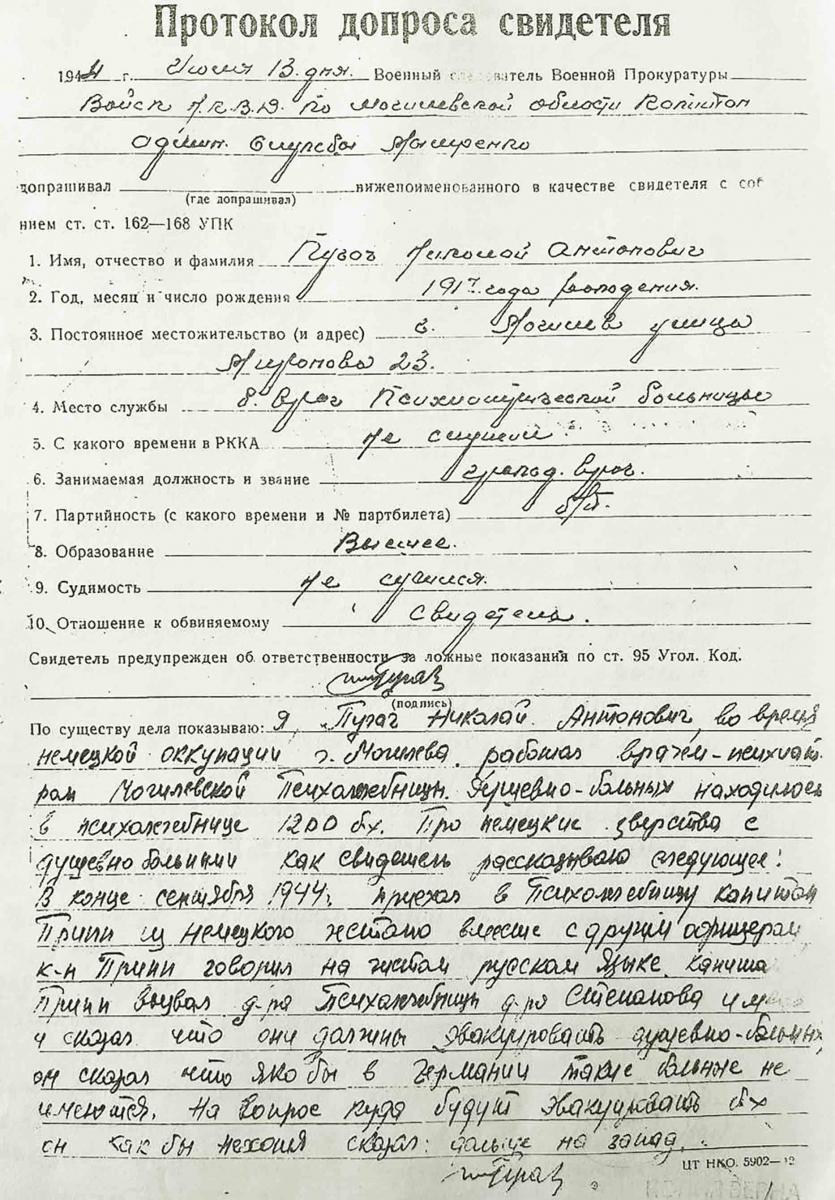 Протокол допроса свидетеля
1944 г. Июля 13 дня. Военный следователь Военной Прокуратуры
Войск Н.К.В.Д. по Могилевской области Капитан
Админ. Службы
допрашивал нижепоименованного в качестве свидетеля с соб
(где допрашивал)
нием ст. ст. 162—168 УПК
1. Имя, отчество и фамилия Пугач Николай Антонович
2. Год, месяц и число рождения 1917 года рождения.
3. Постоянное местожительство (и адрес) г. Могилев улица
Миронова 23.
4. Место службы б. врач Психиатрической больницы
5. С какого времени в РККА не служил.
6. Занимаемая должность и звание гражд. врач.
7. Партийность (с какого времени и № партбилета) б/п.
8. Образование Высшее.
9. Судимость не судился.
10. Отношение к обвиняемому свидетель.
Свидетель предупрежден об ответственности за ложные показания по ст. 95 Угол. Код.
Пугач
(подпись)
По существу дела показываю: Я, Пугач Николай Антонович, во время
немецкой оккупации г. Могилева работал врачём-психиат-
ром Могилевской Психолечебницы. Душевно-больных находилось
в психолечебнице 1200 б-х. Про немецкие зверства с
душевнобольными как свидетель рассказываю следующее:
В конце сентября 1944г. приехал в Психолечебницу капитан
Припп из немецкого гестапо вместе с другим офицером
к-н Припп говорил на чистом русском языке. Капитан
Припп вызвал д-ра Психолечебницы д-ра Степанова и
и сказал что они должны эвакуировать душевно-больных
он сказал что якобы в Германии такие больные не
имеются. На вопрос куда будут эвакуировать б-х
он как бы нехотя сказал: дальше на запад.
Пугач
ЦТ НКО. 5902—